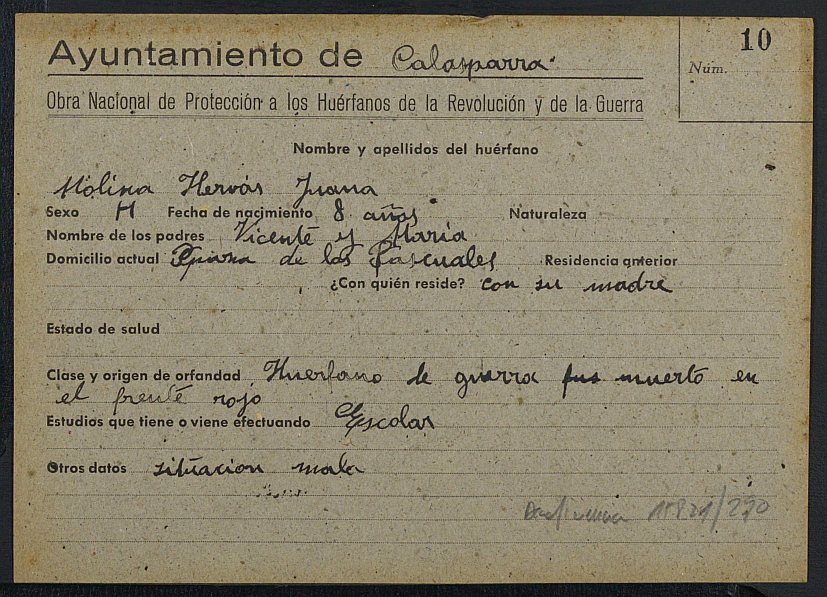 10
Ayuntamiento de Calasparra
Núm.
Obra Nacional de Protección a los Huérfanos de la Revolución y de la Guerra
Nombre y apellidos del huérfano
Molina Hervás Juana
Sexo H Fecha de nacimiento 8 años Naturaleza
Nombre de los padres Vicente y María
Domicilio actual de los Pascuales Residencia anterior
¿Con quién reside? con su madre
Estado de salud
Clase y origen de orfandad Huerfano de guerra fue muerto en
el frente rojo
Estudios que tiene o viene efectuando Escolar
Otros datos situacion mala